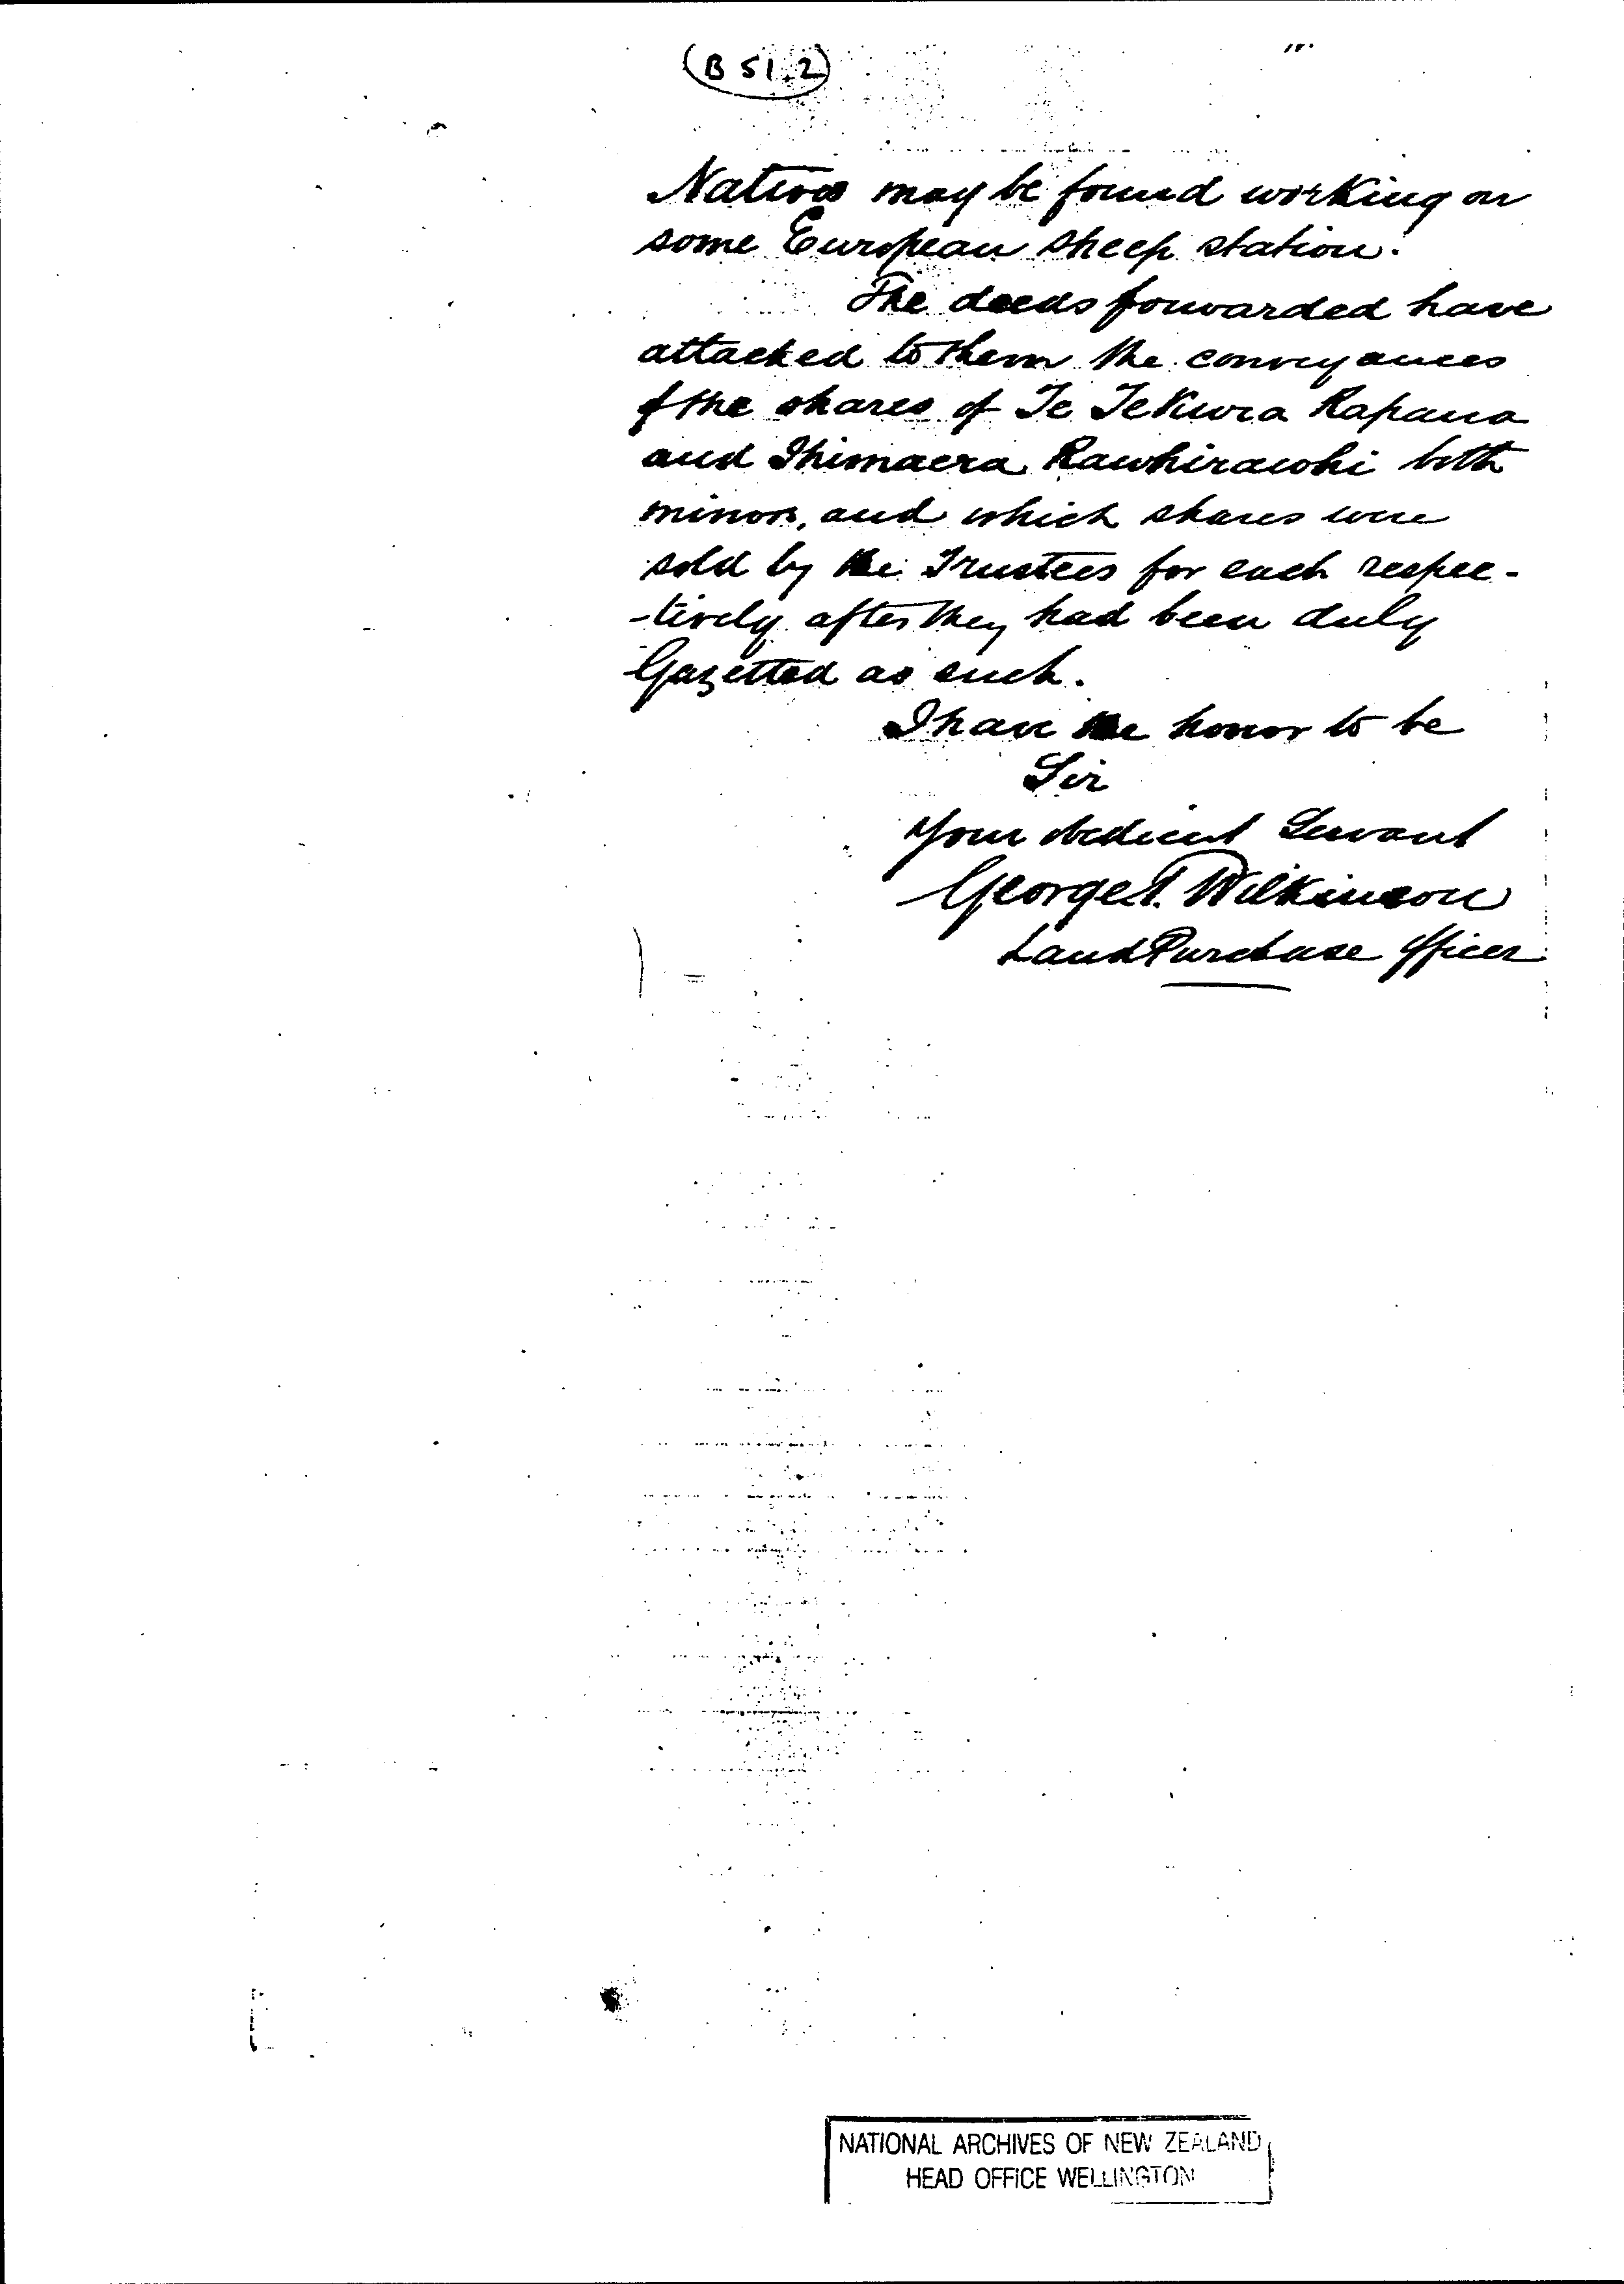 (B 51.2)
Natives may be found working on
some European sheep station.
The deeds forwarded have
attached to them the conveyances
of the shares of Te TeKura Rapana
and Ihimaera Rawhirawhi both
minors, and which shares were
sold by the Trustees for each respec-
-tively after they had been duly
Gazetted as such.
I have the honor to be
Sir
Your obedient Servant
George T. Wilkinson
Land Purchase Officer
NATIONAL ARCHIVES OF NEW ZEALAND
HEAD OFFICE WELLINGTON